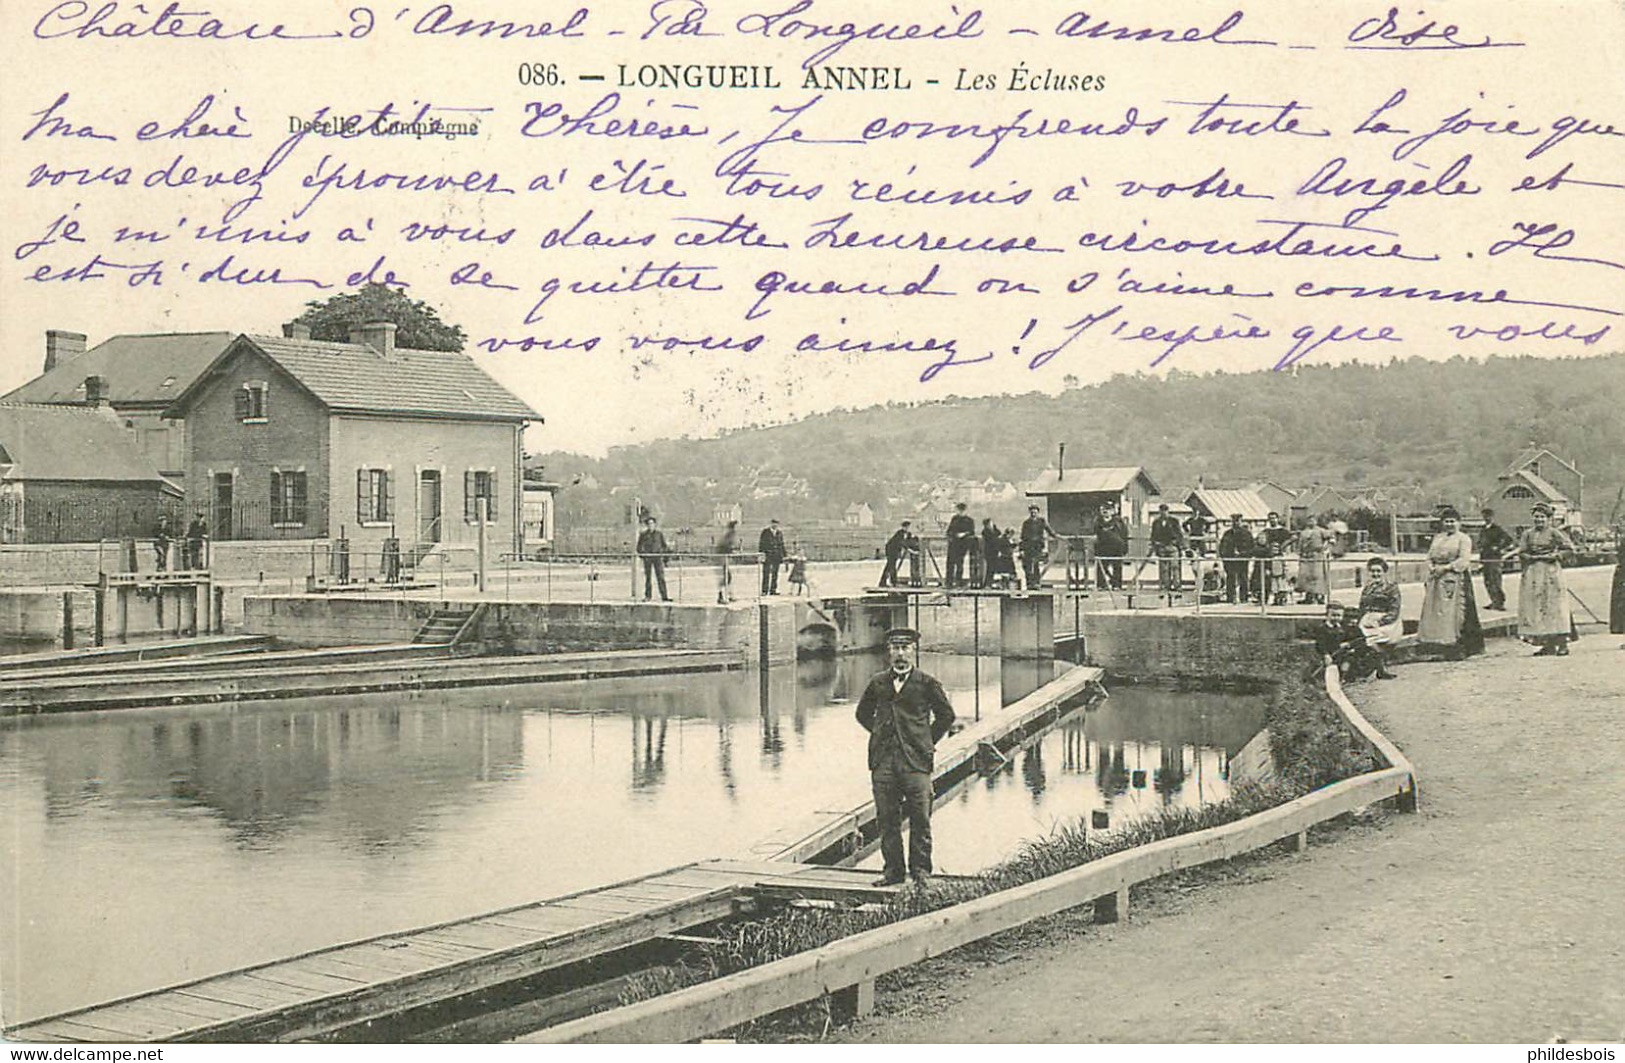 Château d'Annel - Par Longueil - Annel - Oise
086. — LONGUEIL ANNEL - Les Écluses
Decelle, Compiègne
Ma chère petite Thérèse, Je comprends toute la joie que
vous devez éprouver à être tous réunis à votre Angèle et
je m'unis à vous dans cette heureuse circonstance. Il
est si dur de se quitter quand on s'aime comme
vous vous aimez ! J'espère que vous
www.delcampe.net
phildesbois